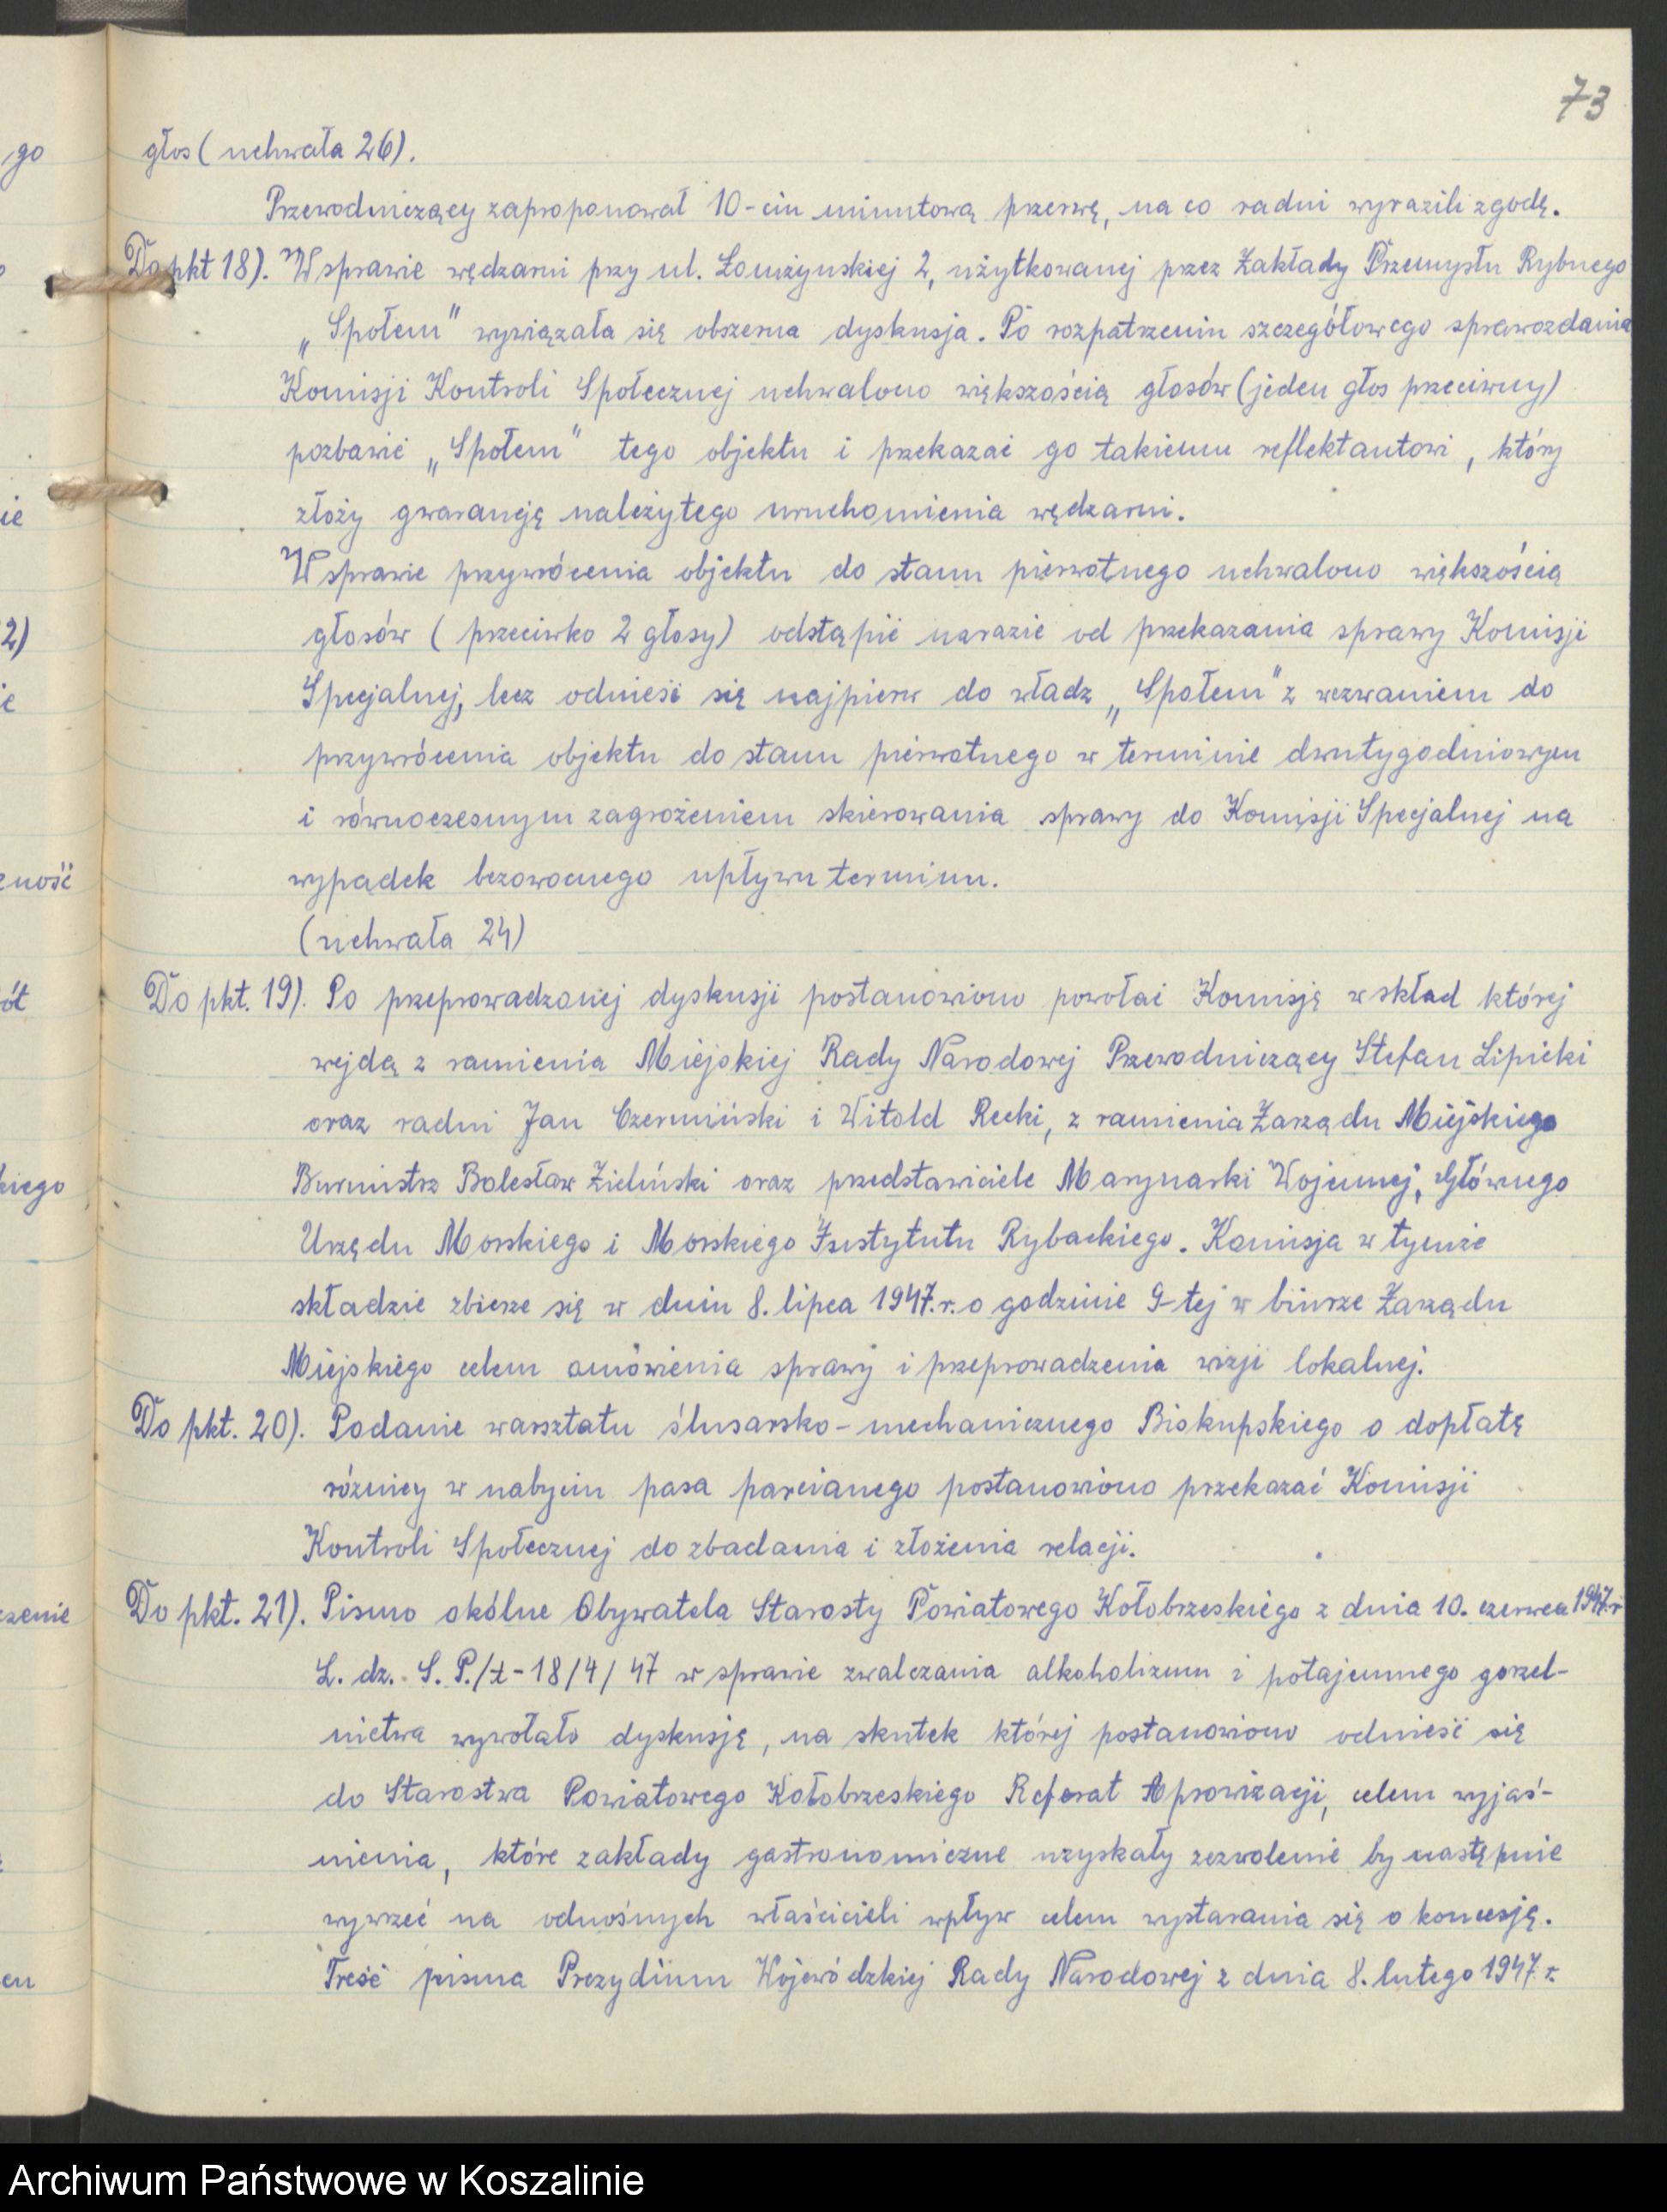 73
głos (uchwała 26).
Przewodniczący zaproponował 10-ciu minutową przerwę, na co radni wyrazili zgodę.
Do pkt 18). W sprawie wędzarni przy ul. Łomżyńskiej 2, użytkowanej przez Zakłady Przemysłu Rybnego
„Społem" wywiązała się obszerna dyskusja. Po rozpatrzeniu szczegółowego sprawozdania
Komisji Kontroli Społecznej uchwalono większością głosów (jeden głos przeciwny)
pozbawić „Społem" tego objektu i przekazać go takiemu reflektantowi, który
złoży gwarancję należytego uruchomienia wędzarni.
W sprawie przywrócenia objektu do stanu pierwotnego uchwalono większością
głosów (przeciwko 2 głosy) odstąpić narazie od przekazania sprawy Komisji
Specjalnej, lecz odnieść się najpierw do władz „Społem" z wezwaniem do
przywrócenia objektu do stanu pierwotnego w terminie dwutygodniowym
i równoczesnym zagrożeniem skierowania sprawy do Komisji Specjalnej na
wypadek bezowocnego upływu terminu.
(uchwała 24)
Do pkt. 19). Po przeprowadzonej dyskusji postanowiono powołać Komisję w skład której
wejdą z ramienia Miejskiej Rady Narodowej Przewodniczący Stefan Lipicki
oraz radni Jan Czermiński i Witold Recki, z ramienia Zarządu Miejskiego
Burmistrz Bolesław Zieliński oraz przedstawiciele Marynarki Wojennej, Głównego
Urzędu Morskiego i Morskiego Instytutu Rybackiego. Komisja w tymże
składzie zbierze się w dniu 8. lipca 1947.r. o godzinie 9-tej w biurze Zarządu
Miejskiego celem omówienia sprawy i przeprowadzenia wizji lokalnej.
Do pkt. 20). Podanie warsztatu ślusarsko-mechanicznego Biskupskiego o dopłatę
różnicy w nabyciu pasa parcianego postanowiono przekazać Komisji
Kontroli Społecznej do zbadania i złożenia relacji.
Do pkt. 21). Pismo okólne Obywatela Starosty Powiatowego Kołobrzeskiego z dnia 10. czerwca 1947.r
L. dz. S. P./t-18/4/47 w sprawie zwalczania alkoholizmu i potajemnego gorzel-
nictwa wywołało dyskusję, na skutek której postanowiono odnieść się
do Starostwa Powiatowego Kołobrzeskiego Referat Aprowizacji, celem wyjaś-
nienia, które zakłady gastronomiczne uzyskały zezwolenie by następnie
wywrzeć na odnośnych właścicieli wpływ celem wystarania się o koncesję.
Treść pisma Prezydium Wojewódzkiej Rady Narodowej z dnia 8. lutego 1947 r.
Archiwum Państwowe w Koszalinie